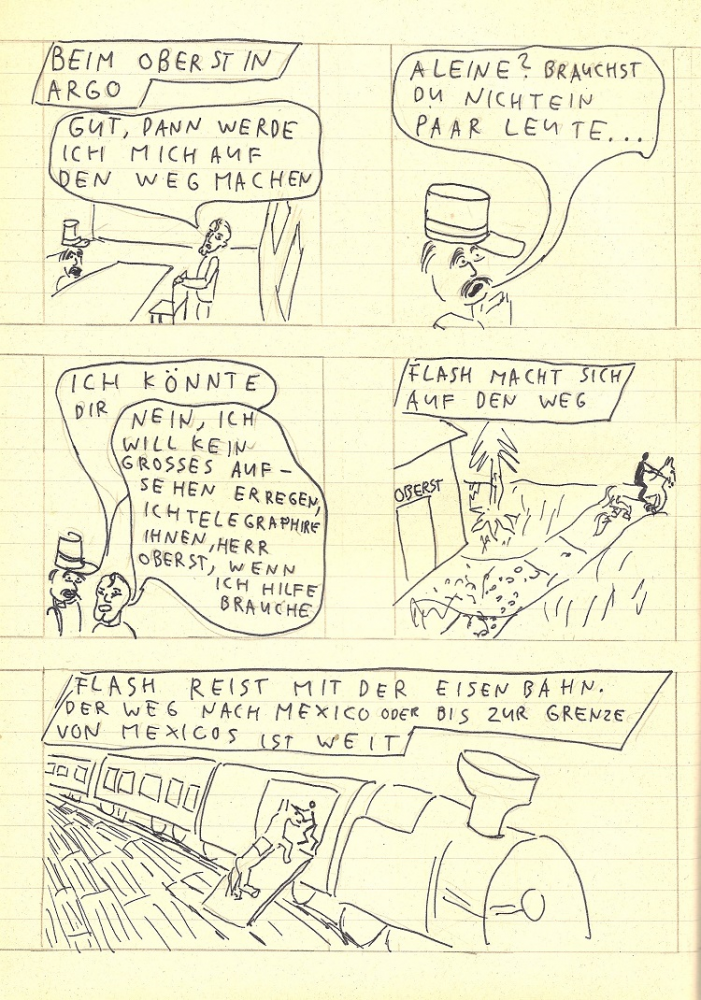 BEIM OBERST IN
ARGO
GUT, DANN WERDE
ICH MICH AUF
DEN WEG MACHEN
ALEINE? BRAUCHST
DU NICHT EIN
PAAR LEUTE...
ICH KÖNNTE
DIR
NEIN, ICH
WILL KEIN
GROSSES AUF-
SEHEN ERREGEN,
ICH TELEGRAPHIRE
IHNEN, HERR
OBERST, WENN
ICH HILFE
BRAUCHE
FLASH MACHT SICH
AUF DEN WEG
OBERST
FLASH REIST MIT DER EISENBAHN.
DER WEG NACH MEXICO ODER BIS ZUR GRENZE
VON MEXICOS IST WEIT